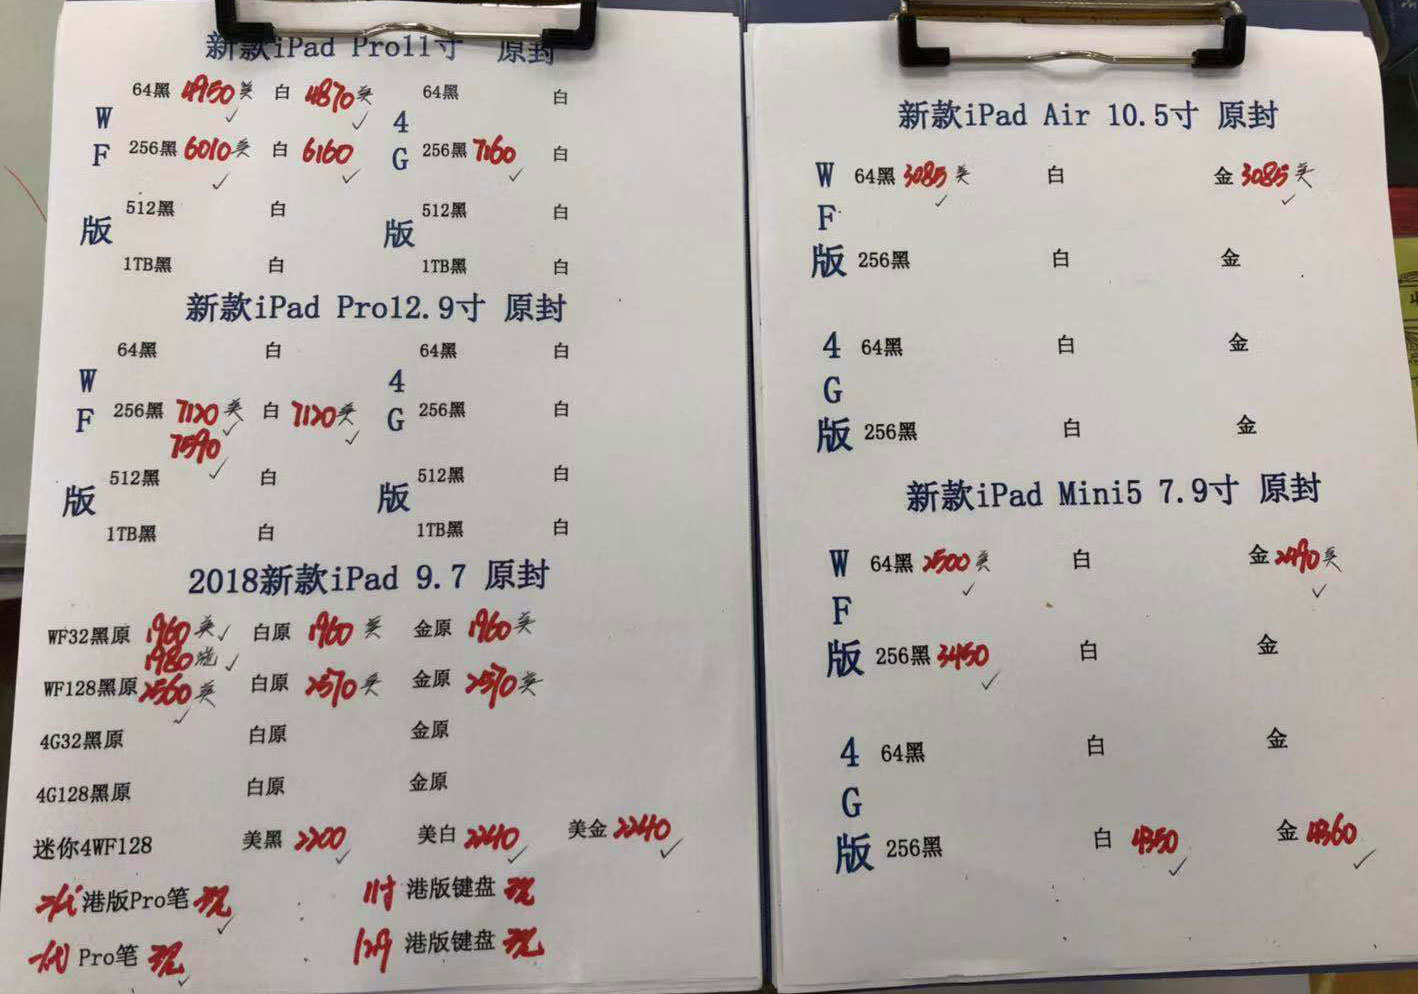 新款iPad Pro11寸 原封
64黑 4950美 白 4870美 64黑 白
W 4
F 256黑 6010美 白 6160 G 256黑 7160 白
512黑 白 512黑 白
版 版
1TB黑 白 1TB黑 白
新款iPad Pro12.9寸 原封
64黑 白 64黑 白
W 4
F 256黑 7120美 白 7120美 G 256黑 白
7590
512黑 白 512黑 白
版 版
1TB黑 白 1TB黑 白
2018新款iPad 9.7 原封
WF32黑原 1960美 白原 1960美 金原 1960美
1980
WF128黑原 2560美 白原 2570美 金原 2570美
4G32黑原 白原 金原
4G128黑原 白原 金原
迷你4WF128 美黑 2200 美白 2240 美金 2240
港版Pro笔 现 11寸 港版键盘 现
Pro笔 现 129 港版键盘 现
新款iPad Air 10.5寸 原封
W 64黑 3085美 白 金 3085美
F
版 256黑 白 金
4 64黑 白 金
G
版 256黑 白 金
新款iPad Mini5 7.9寸 原封
W 64黑 2500美 白 金 2490美
F
版 256黑 3450 白 金
4 64黑 白 金
G
版 256黑 白 4350 金 4360